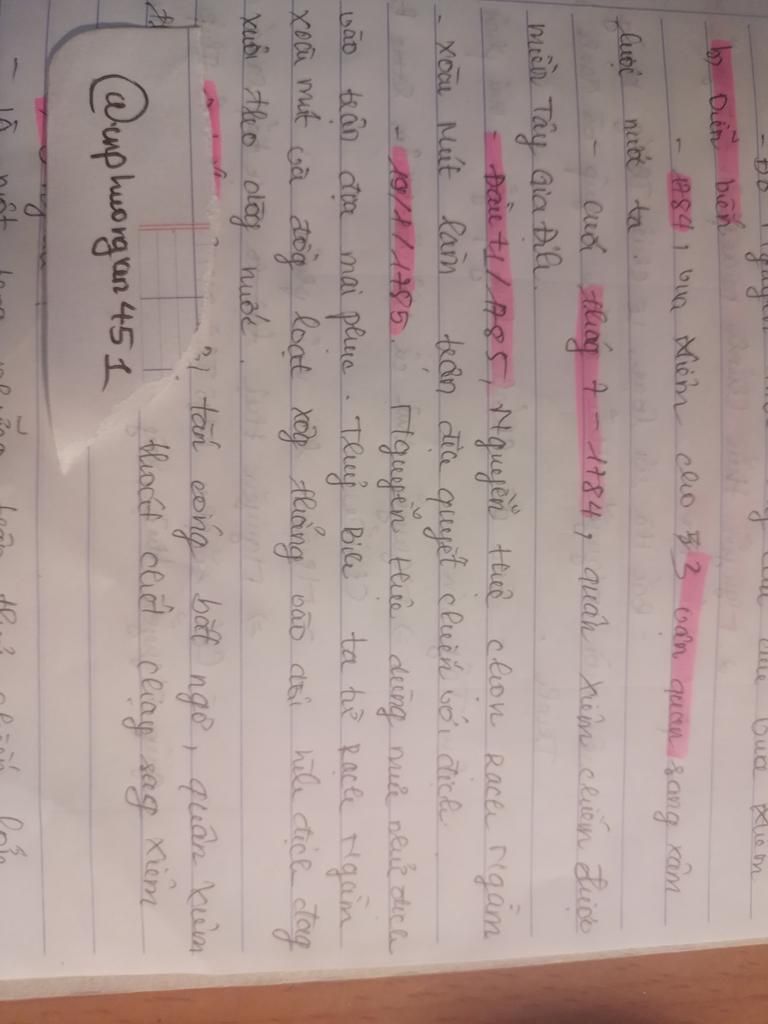 - Do Nguyễn
vua Xiêm
b) Diễn biến
- 1784, vua Xiêm cho 3 vạn quân sang xâm
lược nước ta.
- cuối tháng 7 - 1784, quân Xiêm chiếm được
miền Tây Gia Định.
- Đầu t1/1785, Nguyễn Huệ chọn Rạch Ngầm
- xoài Mút làm trận địa quyết chiến với địch
- 19/1/1785. Nguyễn Huệ dùng mưu nhử địch
vào trận địa mai phục. Thuỷ Binh ta từ Rạch Ngầm
xoài mút và đồg loạt xôg thẳng vào đội hình địch đag
xuôi theo dòg nước.
tấn công bất ngờ, quân Xiêm
thoát chết chạy sag xiêm
- là một trong những trận thuỷ chiến lớn
@wnphuongvan451